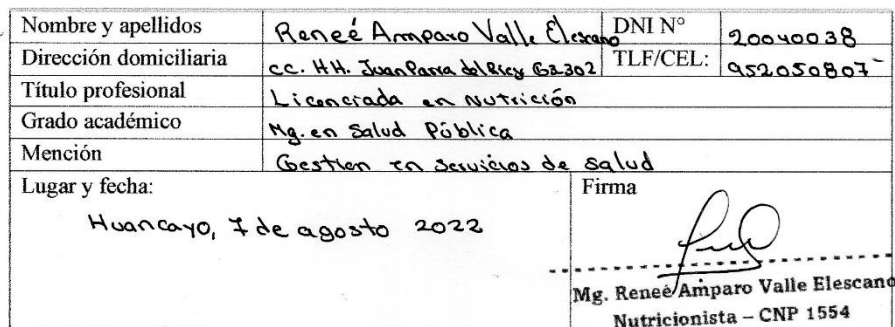 Nombre y apellidos Reneé Amparo Valle Elescano DNI N° 20040038
Dirección domiciliaria cc. HH. Juan Parra del Riego G2-302 TLF/CEL: 952050807
Título profesional Licenciada en Nutrición
Grado académico Mg. en Salud Pública
Mención Gestion en servicios de salud
Lugar y fecha: Firma
Huancayo, 7 de agosto 2022
Mg. Reneé Amparo Valle Elescano
Nutricionista – CNP 1554